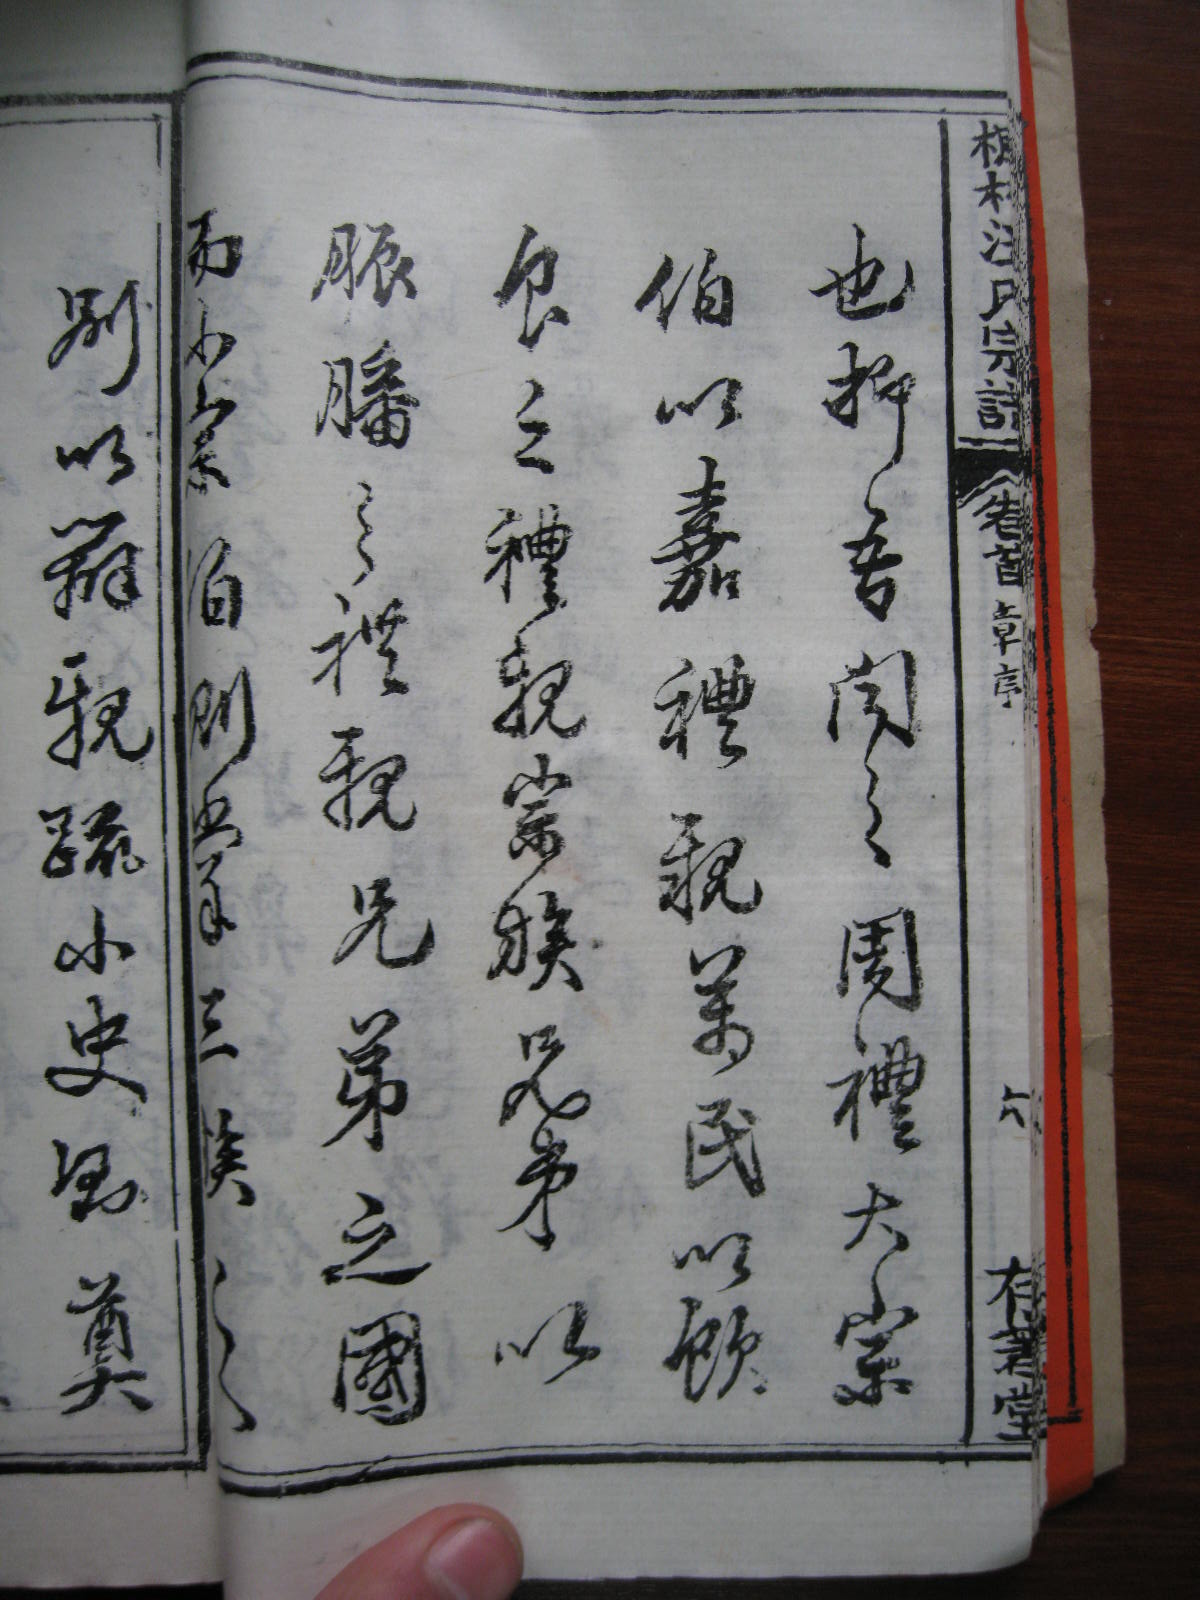 村汪氏宗譜 卷首 章序 六 存著堂
也抑吾聞之周禮大宗
伯以嘉禮親萬民以飲
食之禮親宗族兄弟以
脤膰之禮親兄弟之國
而小宗伯則掌三族之
別以辨親疏小史奠